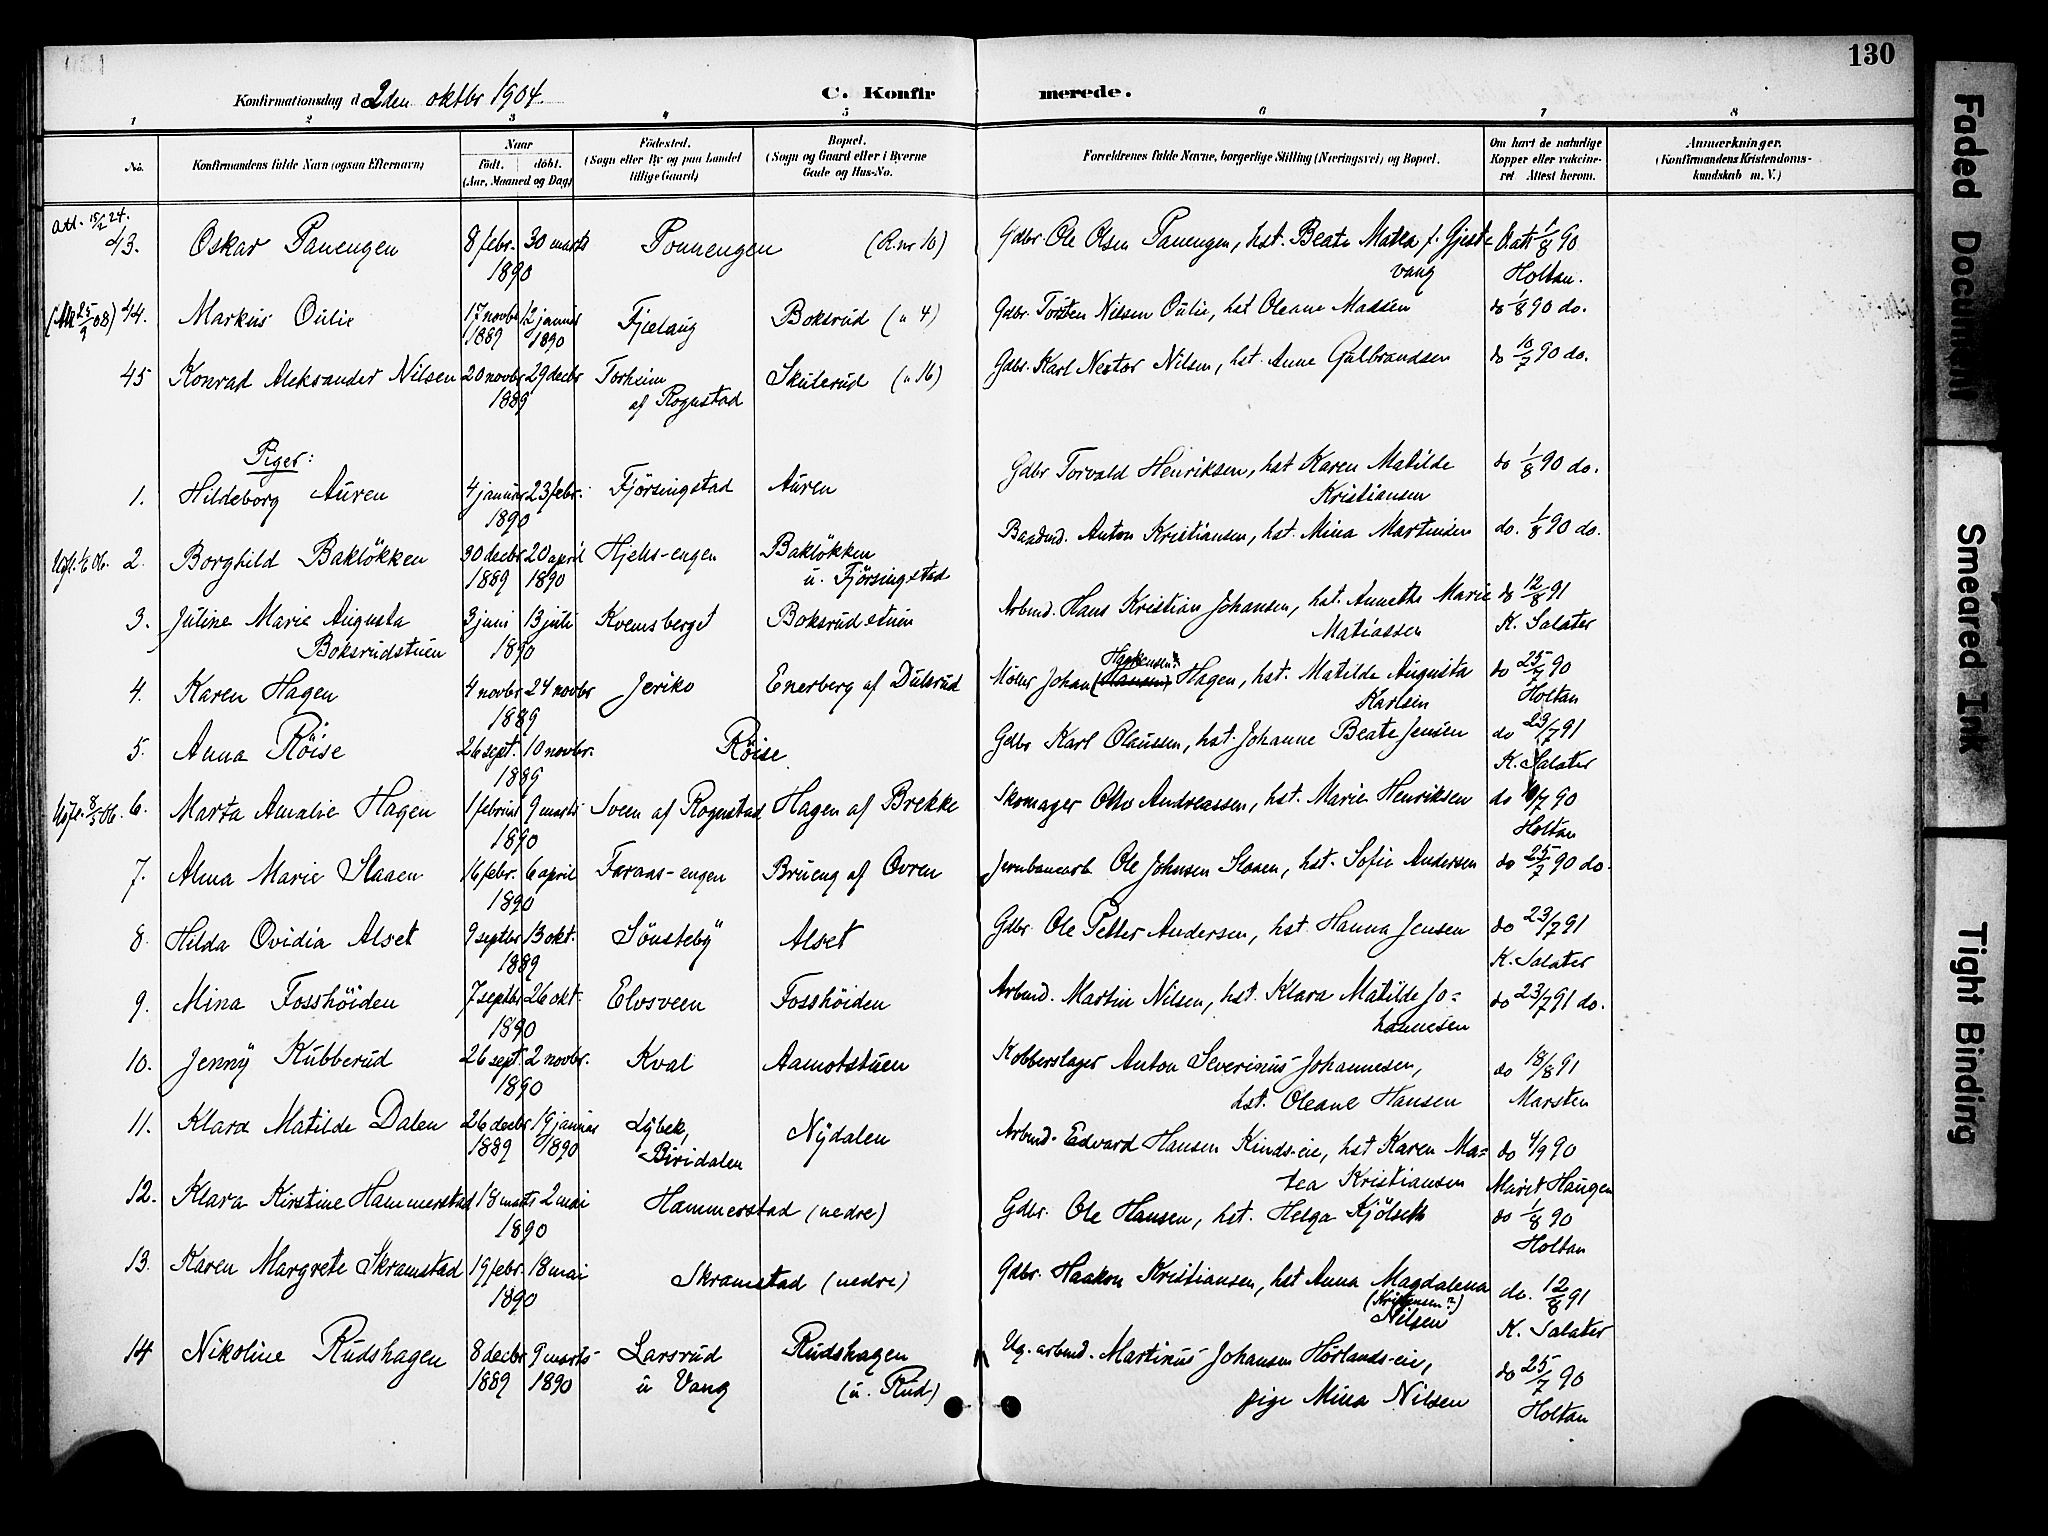 130
Konfirmationsdag d. 2den oktbr 1904.
C. Konfirmerede.
1 2 3 4 5 6 7 8
No.
Konfirmandens fulde Navn (ogsaa Efternavn)
Naar
født. døbt.
(Aar, Maaned og Dag)
Fødested.
(Sogn eller By og paa Landet
tillige Gaard)
Bopæl.
(Sogn og Gaard eller i Byerne
Gade og Hus-No.
Forældrenes fulde Navne, borgerlige Stilling (Næringsvei) og Bopæl.
Om havt de naturlige
Kopper eller vakcine-
ret Attest herom.
Anmærkninger.
(Konfirmandens Kristendoms-
kundskab m. V.)
Att. 15/2 24.
43. Oskar Panengen 8 febr. 30 marts Ponnengen (R.nr 10) Gdbr. Ole Olsen Panengen, hst. Beate Matea f. Gjest- Att. 1/8 90
1890 vang Holtan.
(Att 25/9 08) 44. Markus Oulie 17 novbr 12 januar Fjælaug Boksrud (" 4) Gdbr. Torsten Nilsen Oulie, hst Oleane Madsen do 1/8 90 do.
1889 1890
45 Konrad Aleksander Nilsen 20 novbr 29 decbr Torheim Skulerud (" 16) Gdbr. Karl Nestor Nilsen, hst. Anne Gulbrandsen do 10/7 90 do.
1889 af Rognstad
Piger:
1. Hildeborg Auren 4 januar 23 febr. Fjørsingstad Auren Gdbr Torvald Henriksen, hst Karen Matilde do 1/8 90 do.
1890 Kristiansen
2. Borghild Bakløkken 30 decbr 20 april Hjells-engen Bakløkken Baadsmd. Anton Kristiansen, hst. Mina Martinsen do. 1/8 90 do.
1889 1890 u. Fjørsingstad
3. Juline Marie Augusta 3 juni 13 juli Kvemsberget Boksrudstuen Arbmd. Hans Kristian Johansen, hst. Annette Marie do 12/8 91
Boksrudstuen 1890 Matiassen K. Salater
4. Karen Hagen 4 novbr 24 novbr Jeriko Enerberg af Dulsrud Møller Johan (Hansen) Haakensen? Hagen, hst. Matilde Augusta do 25/7 90
1889 Karlsen Holtan
5. Anna Røise 26 sept. 10 novbr. Røise Gdbr Karl Olaussen, hst. Johanne Beate Jensen do 23/7 91
1889 K. Salater
Utfl. 8/5 06. 6. Marta Amalie Hagen 1 februar 9 marts Sveen af Rognstad Hagen af Brekke Skomager Otto Andreassen, hst. Marie Henriksen do /7 90
1890 Holtan
7. Alma Marie Slaaen 16 febr. 6 april Faraas-engen Brueng af Ovren Jernbanearb Ole Johnsen Slaaen, hst. Sofie Andersen do 25/7 90 do.
1890
8. Hilda Ovidia Alset 9 septbr 13 okt. Sønsteby Alset Gdbr. Ole Petter Andersen, hst. Hanna Jensen do 23/7 91
1889 K. Salater
9. Mina Fosshøiden 7 septbr 26 okt. Elvsveen Fosshøiden Arbmd. Martin Nilsen, hst. Klara Matilde Jo= do 23/7 91 do.
1890 hannesen
10. Jenny Kubberud 26 sept. 2 novbr. Kval Aamotstuen Kobberslager Anton Severinus Johannesen, do 18/8 91
1890 hst. Oleane Hansen Marsten
11. Klara Matilde Dalen 26 decbr 19 januar Lybek, Nydalen Arbmd. Edvard Hansen Kinds-eie, hst Karen Ma= do 4/9 90
1889 1890 Biridalen tea Kristiansen Marit Haugen
12. Klara Kirstine Hammerstad 18 marts 2 mai Hammerstad (nedre) Gdbr. Ole Hansen, hst. Helga Kjølseth do 1/8 90
1890 Holtan
13. Karen Margrete Skramstad 19 febr. 18 mai Skramstad (nedre) Gdbr. Haakon Kristiansen, hst Anna Magdalena do. 12/8 91
1890 (Kristensen?) Nilsen K. Salater
14 Nikoline Rudshagen 8 decbr 9 marts Larsrud Rudshagen Ug. arbmd. Martinus Johansen Hørlands-eie, do 25/7 90
1889 1890 u Vang (u. Rud) pige Mina Nilsen Holtan
Faded Document
Smeared Ink
Tight Binding